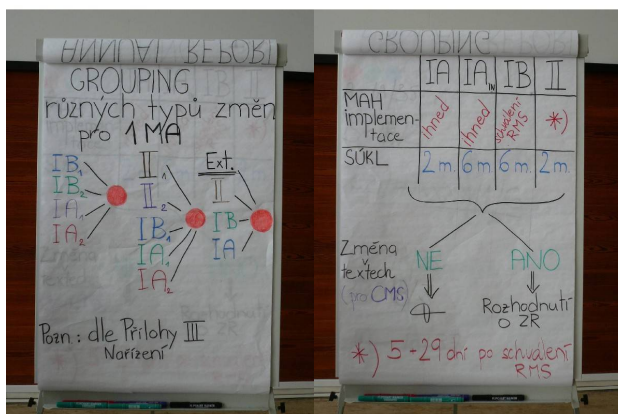 ANNUAL REPORT
GROUPING
různých typů změn
pro 1 MA
IB1
IB2
IA1
IA2
II1
II2
IB1
IA1
IA2
Ext.
II
IB
IA
Pozn: dle Přílohy III
Nařízení
GROUPING
IA IA IN IB II
MAH
implemen-
tace
ihned
ihned
schválení
RMS
*)
SÚKL
2 m. 6 m. 6 m. 2 m.
Změna
v textech
(pro CMS)
NE
ANO
Rozhodnutí
o ZR
*) 5-29 dní po schválení
RMS